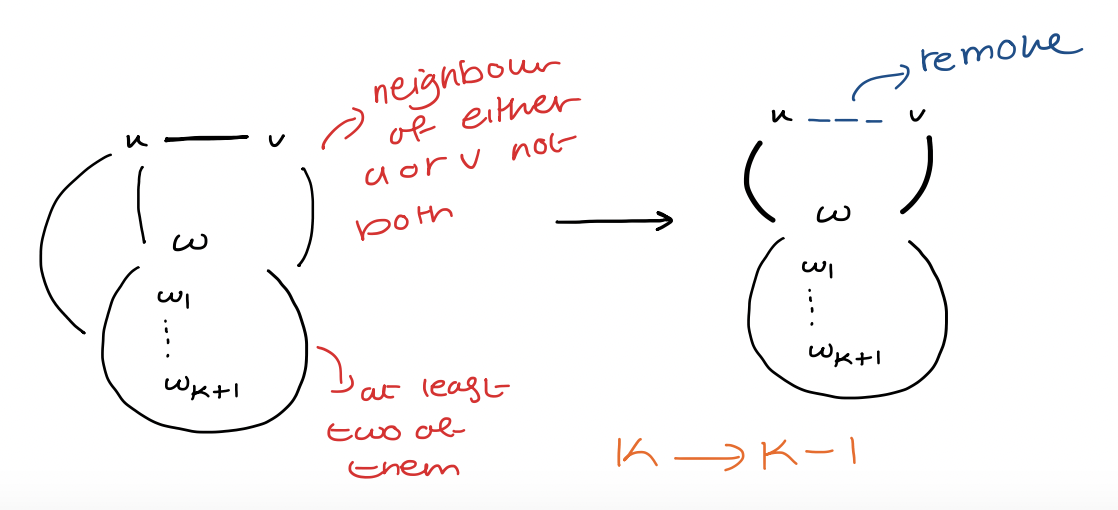 remove
neighbour
of either
u or v not
both
u v
ω
ω1
ωk+1
at least
two of
them
u v
ω
ω1
ωk+1
K → K-1